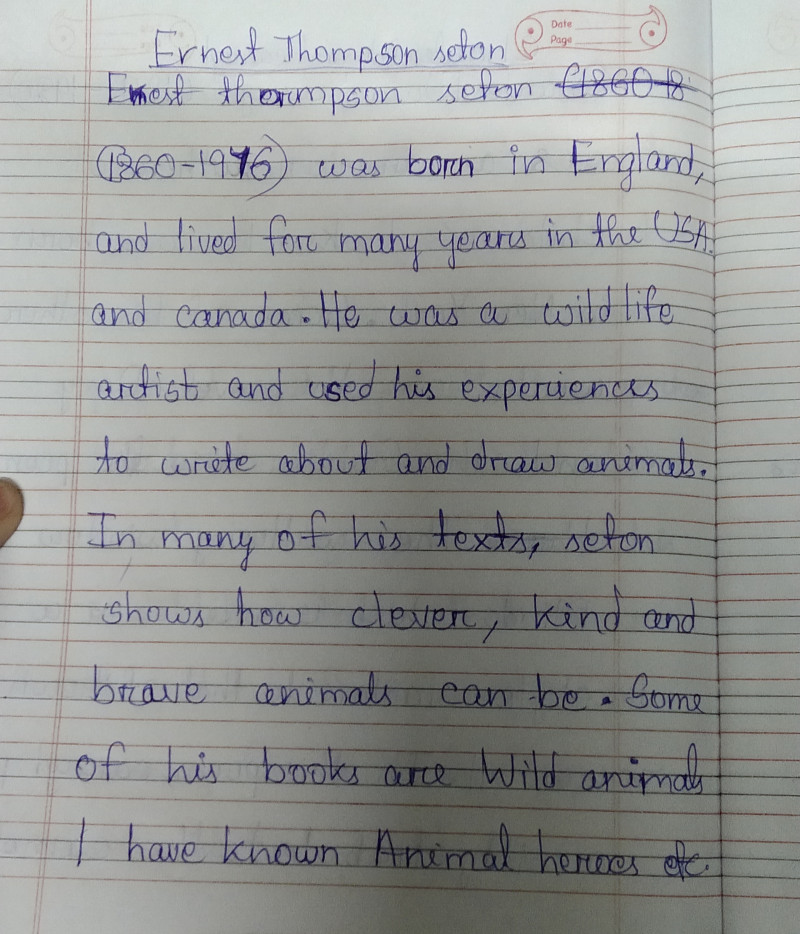 Date
Page
Ernest Thompson seton
Ernest thormpson seton
(1860-1946) was born in England,
and lived for many years in the USA
and canada. He was a wild life
artist and used his experiences
to write about and draw animals.
In many of his texts, seton
shows how clever, kind and
brave animals can be. Some
of his books are Wild animals
I have known Animal heroes etc.